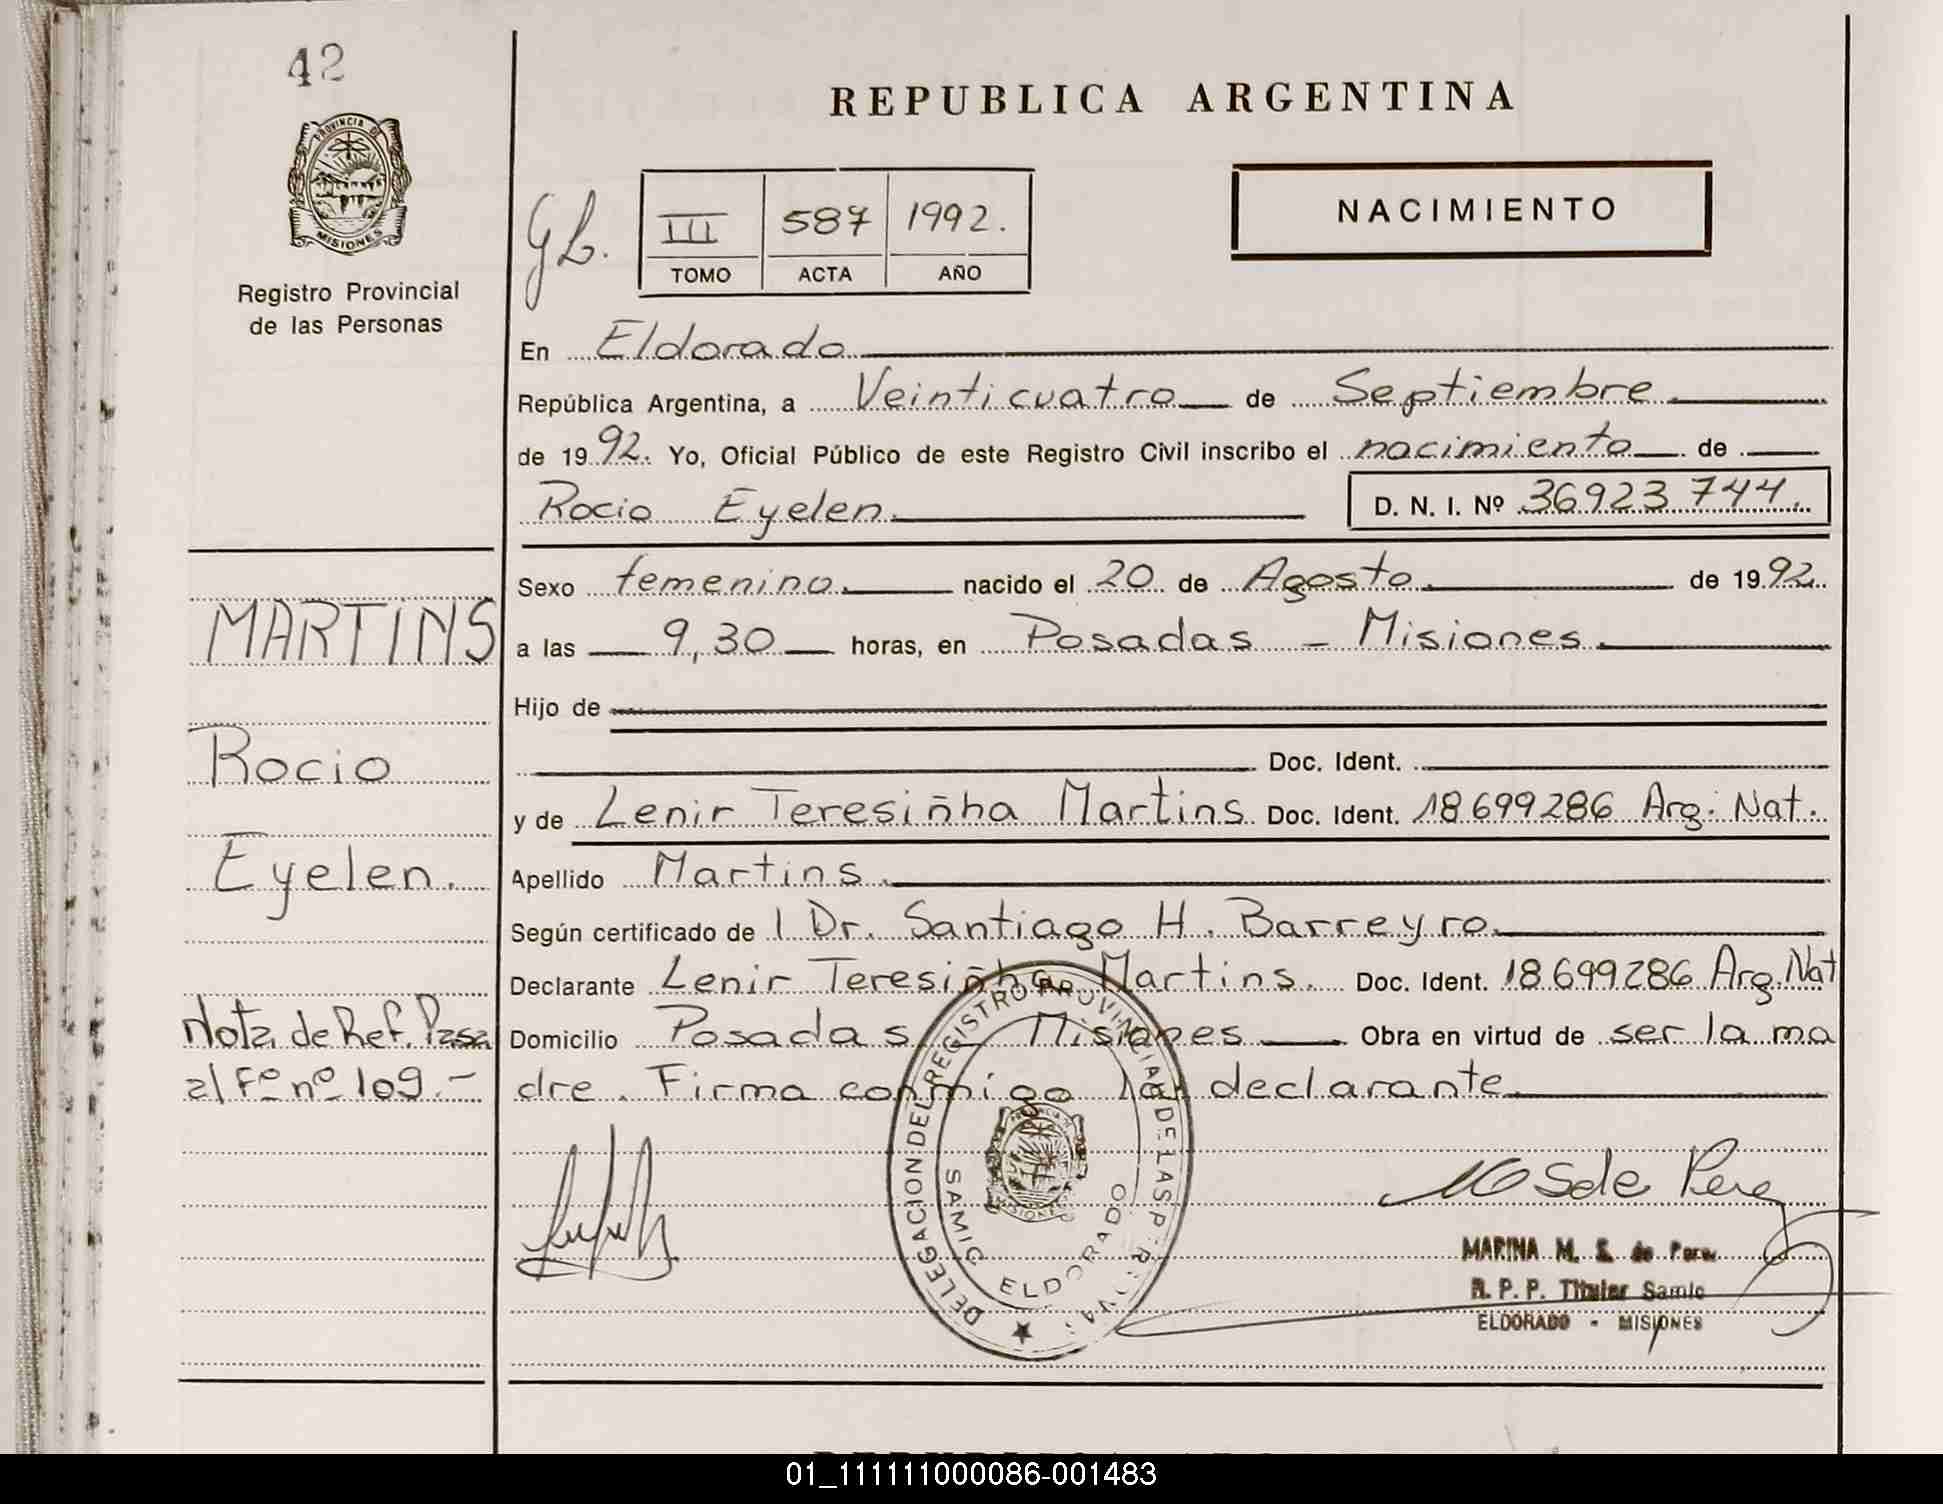 42
PROVINCIA DE
MISIONES
Registro Provincial
de las Personas
MARTINS
Rocio
Eyelen.
Nota de Ref. Pasa
al Fº nº 109.-
REPUBLICA ARGENTINA
III 587 1992.
TOMO ACTA AÑO
NACIMIENTO
En Eldorado
República Argentina, a Veinticuatro de Septiembre
de 1992. Yo, Oficial Público de este Registro Civil inscribo el nacimiento de
Rocio Eyelen. D. N. I. Nº 36923744.
Sexo femenino. nacido el 20 de Agosto de 1992.
a las 9,30 horas, en Posadas - Misiones.
Hijo de
Doc. Ident.
y de Lenir Teresiñha Martins Doc. Ident. 18699286 Arg. Nat.
Apellido Martins.
Según certificado de l Dr. Santiago H. Barreyro.
Declarante Lenir Teresiñha Martins. Doc. Ident. 18.699286 Arg. Nat
Domicilio Posadas - Misiones Obra en virtud de ser la ma
dre. Firma conmigo la declarante
DELEGACION DEL REGISTRO PROVINCIAL DE LAS PERSONAS
SAMIC ELDORADO
MISIONES
MARINA M. S. de Perez
R. P. P. Titular Samic
ELDORADO - MISIONES
01_111111000086-001483